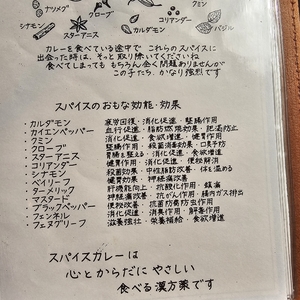 ナツメグ
クローブ
コリアンダー
クミン
シナモン
スターアニス
カルダモン
バジル
カレーを食べている途中で これらのスパイスに
出会った時は、そっと 取り除いてくださいね
食べてしまっても もちろん全く問題ありませんが
この子たち、かなり強烈です
スパイスのおもな効能・効果
・カルダモン 疲労回復・消化促進・整腸作用
・カイエンペッパー 血行促進・脂肪燃焼効果・肥満防止
・クミン 消化促進・食欲増進・健胃作用
・クローブ 整腸作用・殺菌消毒効果・口臭予防
・スターアニス 胃腸を整える・消化促進・食欲増進
・コリアンダー 消化促進・健胃作用・便秘解消
・シナモン 殺菌効果・中性脂肪改善・体を温める
・ベイリーフ 健胃効果・神経痛改善
・ターメリック 肝機能向上・抗酸化作用・鎮痛
・マスタード 神経痛改善・抗がん作用・腸内ガス排出
・ブラックペッパー 便秘改善・抗菌防腐防虫作用
・フェンネル 消化促進・消臭作用・解毒作用
・フェヌグリーク 滋養強壮・栄養補給・食欲増進
スパイスカレーは
心とからだに やさしい
食べる漢方薬です